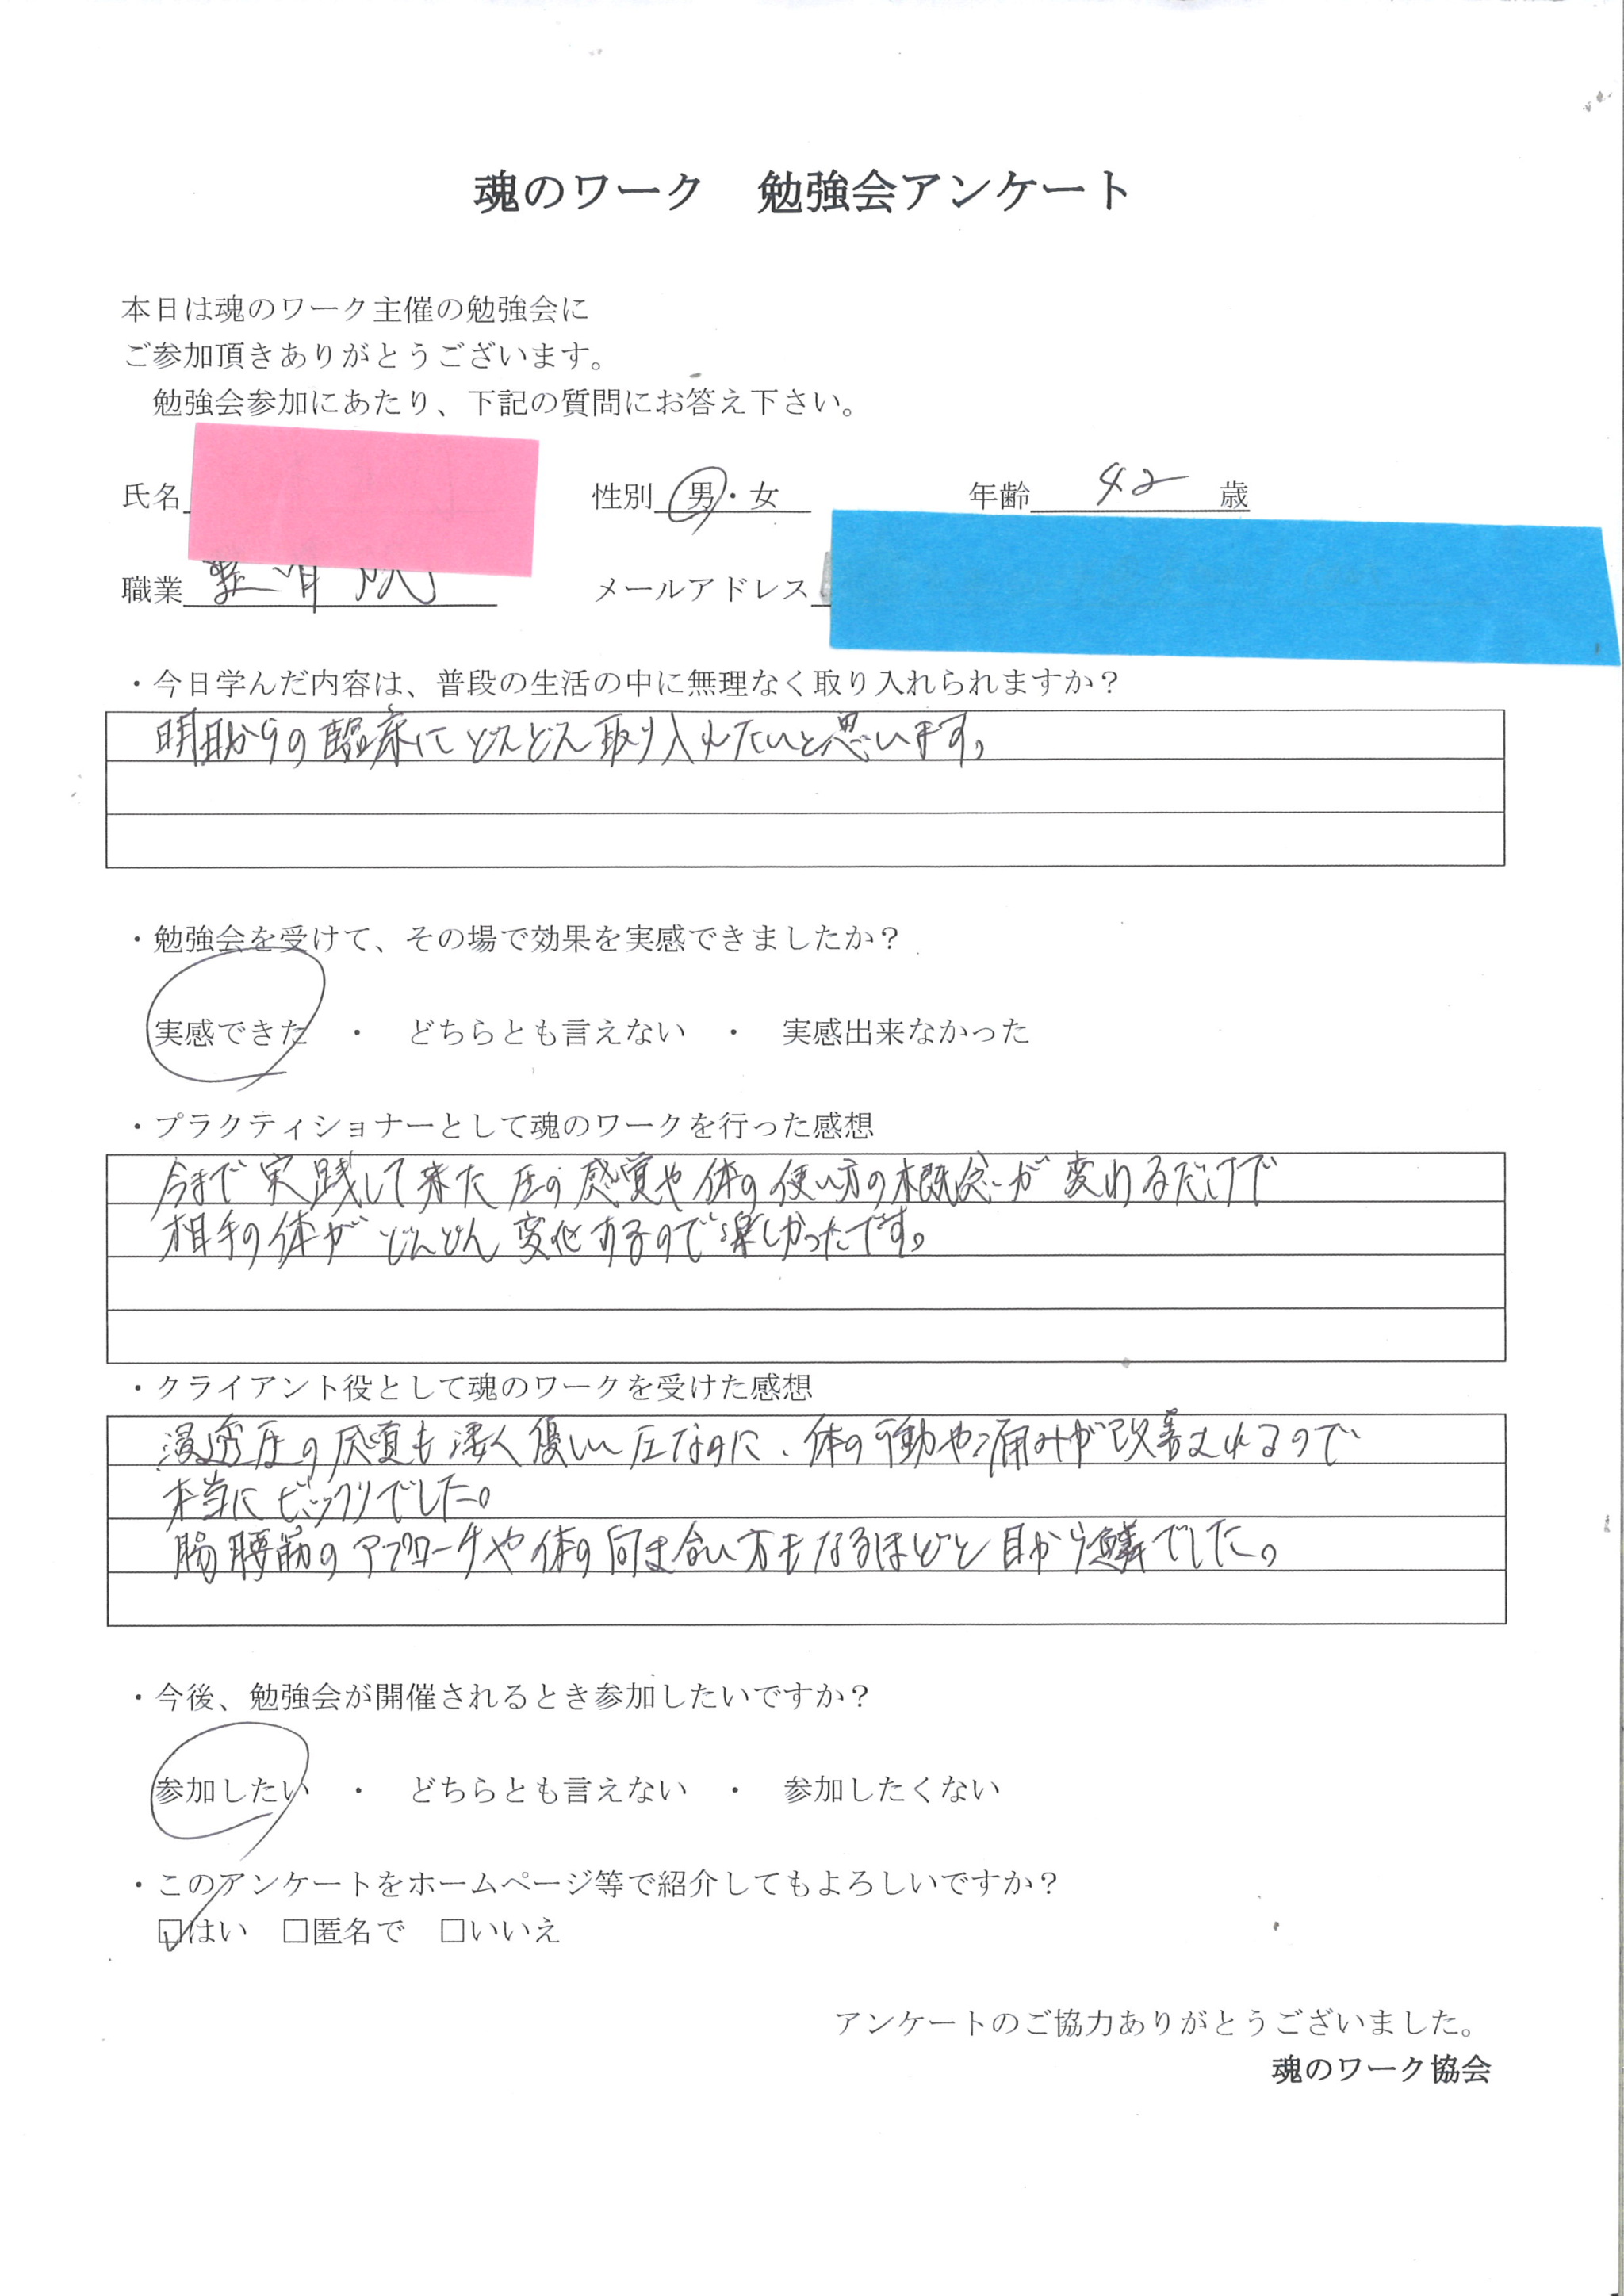 魂のワーク 勉強会アンケート
本日は魂のワーク主催の勉強会に
ご参加頂きありがとうございます。
勉強会参加にあたり、下記の質問にお答え下さい。
氏名 性別 男・女 年齢 42 歳
職業 整骨院 メールアドレス
・今日学んだ内容は、普段の生活の中に無理なく取り入れられますか？
明日からの臨床にどんどん取り入れたいと思います。
・勉強会を受けて、その場で効果を実感できましたか？
実感できた ・ どちらとも言えない ・ 実感出来なかった
・プラクティショナーとして魂のワークを行った感想
今まで実践して来た圧の感覚や体の使い方の概念が変わるだけで
相手の体がどんどん変化するので楽しかったです。
・クライアント役として魂のワークを受けた感想
浸透圧の も凄く優しい圧なのに、体の可動や痛みが改善されるので
本当にビックリでした。
腸腰筋のアプローチや体の向き合い方もなるほどと目から鱗でした。
・今後、勉強会が開催されるとき参加したいですか？
参加したい ・ どちらとも言えない ・ 参加したくない
・このアンケートをホームページ等で紹介してもよろしいですか？
☑はい □匿名で □いいえ
アンケートのご協力ありがとうございました。
魂のワーク協会